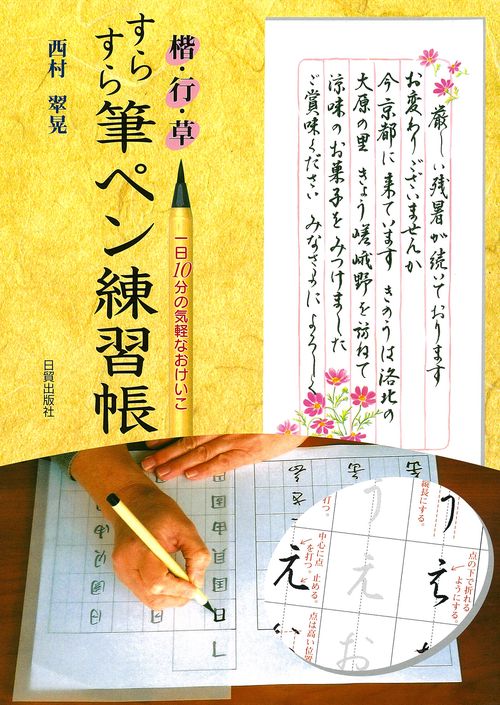 楷・行・草
すらすら筆ペン練習帳
西村 翠晃
一日10分の気軽なおけいこ
日貿出版社
厳しい残暑が続いております
お変わりございませんか
今京都に来ています きのうは洛北の
大原の里 きょう嵯峨野を訪ねて
涼味のお菓子をみつけました
ご賞味ください みなさまによろしく
縦長にする。
打つ。
う
う
点の下で折れる
ようにする。
中心に点
を打つ。
止める。
え
え
え
点は高い位置
お
日
国
貝
由
因